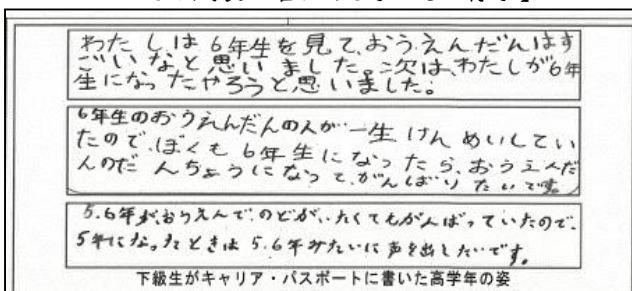 わたしは6年生を見て、おうえんだんはす
ごいなと思いました。次は、わたしが6年
生になったやろうと思いました。
6年生のおうえんだんの人が一生けんめいしてい
たので、ぼくも6年生になったら、おうえんだ
んのだんちょうになって、がんばりたいです。
5.6年が、おうえんで、のどが、いたくてもがんばっていたので、
5年になったときは5.6年みたいに声を出したいです。
下級生がキャリア・パスポートに書いた高学年の姿